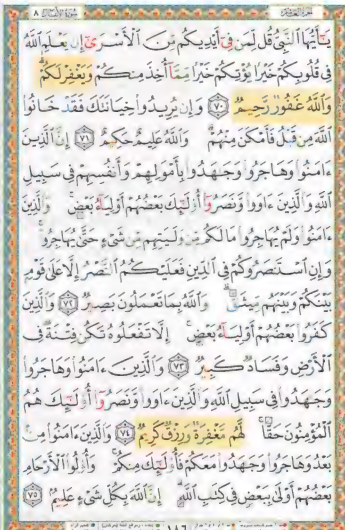 سورة الأنفال ٨
يَٰٓأَيُّهَا ٱلنَّبِيُّ قُل لِّمَن فِىٓ أَيْدِيكُم مِّنَ ٱلْأَسْرَىٰٓ إِن يَعْلَمِ ٱللَّهُ
فِى قُلُوبِكُمْ خَيْرًا يُؤْتِكُمْ خَيْرًا مِّمَّآ أُخِذَ مِنكُمْ وَيَغْفِرْ لَكُمْ
وَٱللَّهُ غَفُورٌ رَّحِيمٌ ٧٠ وَإِن يُرِيدُوا۟ خِيَانَتَكَ فَقَدْ خَانُوا۟
ٱللَّهَ مِن قَبْلُ فَأَمْكَنَ مِنْهُمْ وَٱللَّهُ عَلِيمٌ حَكِيمٌ ٧١ إِنَّ ٱلَّذِينَ
ءَامَنُوا۟ وَهَاجَرُوا۟ وَجَٰهَدُوا۟ بِأَمْوَٰلِهِمْ وَأَنفُسِهِمْ فِى سَبِيلِ
ٱللَّهِ وَٱلَّذِينَ ءَاوَوا۟ وَّنَصَرُوٓا۟ أُو۟لَٰٓئِكَ بَعْضُهُمْ أَوْلِيَآءُ بَعْضٍ وَٱلَّذِينَ
ءَامَنُوا۟ وَلَمْ يُهَاجِرُوا۟ مَا لَكُم مِّن وَلَٰيَتِهِم مِّن شَىْءٍ حَتَّىٰ يُهَاجِرُوا۟
وَإِنِ ٱسْتَنصَرُوكُمْ فِى ٱلدِّينِ فَعَلَيْكُمُ ٱلنَّصْرُ إِلَّا عَلَىٰ قَوْمٍ
بَيْنَكُمْ وَبَيْنَهُم مِّيثَٰقٌ وَٱللَّهُ بِمَا تَعْمَلُونَ بَصِيرٌ ٧٢ وَٱلَّذِينَ
كَفَرُوا۟ بَعْضُهُمْ أَوْلِيَآءُ بَعْضٍ إِلَّا تَفْعَلُوهُ تَكُن فِتْنَةٌ فِى
ٱلْأَرْضِ وَفَسَادٌ كَبِيرٌ ٧٣ وَٱلَّذِينَ ءَامَنُوا۟ وَهَاجَرُوا۟
وَجَٰهَدُوا۟ فِى سَبِيلِ ٱللَّهِ وَٱلَّذِينَ ءَاوَوا۟ وَّنَصَرُوٓا۟ أُو۟لَٰٓئِكَ هُمُ
ٱلْمُؤْمِنُونَ حَقًّا لَّهُم مَّغْفِرَةٌ وَرِزْقٌ كَرِيمٌ ٧٤ وَٱلَّذِينَ ءَامَنُوا۟ مِنۢ
بَعْدُ وَهَاجَرُوا۟ وَجَٰهَدُوا۟ مَعَكُمْ فَأُو۟لَٰٓئِكَ مِنكُمْ وَأُو۟لُوا۟ ٱلْأَرْحَامِ
بَعْضُهُمْ أَوْلَىٰ بِبَعْضٍ فِى كِتَٰبِ ٱللَّهِ إِنَّ ٱللَّهَ بِكُلِّ شَىْءٍ عَلِيمٌۢ ٧٥
١٨٦